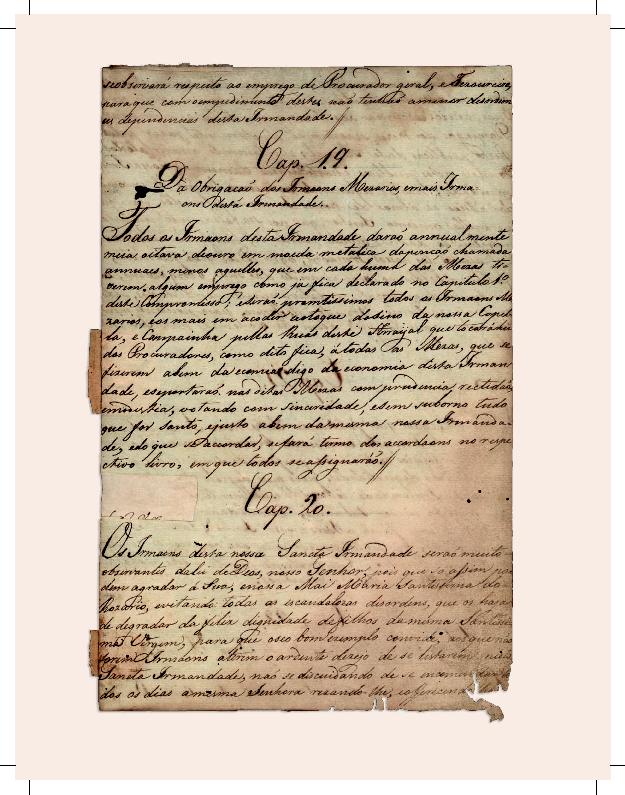 se observará respeito ao emprego de Procurador geral, e Tezoureiro,
para que com o empedimento destes não tenhão a menor desordem
as dependencias desta Irmandade.
Cap. 19.
Da Obrigação dos Irmaons Mezarios, e mais Irma-
ons desta Irmandade.
Todos os Irmaons desta Irmandade darão annualmente
meia oitava de ouro em moeda metalica da penção chamada
annuaes, menos aquelles, que em cada huma das Mezas ti-
verem algum emprego como ja fica declarado no Capitulo 1º
deste Compromisso; e serão promtissimos todos os Irmaons Me-
zarios, e os mais em acodir ao toque do sino da nossa Capel-
la, e Campainha pellas Ruas deste Arraijal que tocará hu
dos Procuradores, como dito fica, á todas as Mezas, que se
fizerem a bem da ecomia digo da economia desta Irman
dade, e sepurtaraõ nas ditas Mezas com prudencia, rectidão,
e modestia, votando com sinceridade, e sem suborno tudo
que for santo, e justo a bem da mesma nossa Irmanda-
de, e do que se accordar, se fará termo dos accordaons no respe-
ctivo livro, em que todos se assignarão.
Cap. 20.
Os Irmaons desta nossa Sancta Irmandade serão muito
observantes da lei de Deos, nosso Senhor, pois que so assim po
dem agradar á Sua, e nossa Mai Maria Santissima do
Rozario, evitando todas as escandalozas desordens, que os
de degradar da feliz dignidade de filhos da mesma Santissi
ma Virgem, para que o seo bom exemplo convide, aos que não
forem Irmaons a terem o ardente dezejo de se listarem nesta
Sancta Irmandade, não se discuidando de se encomendar
dos os dias a mesma Senhora rezando-lhe,